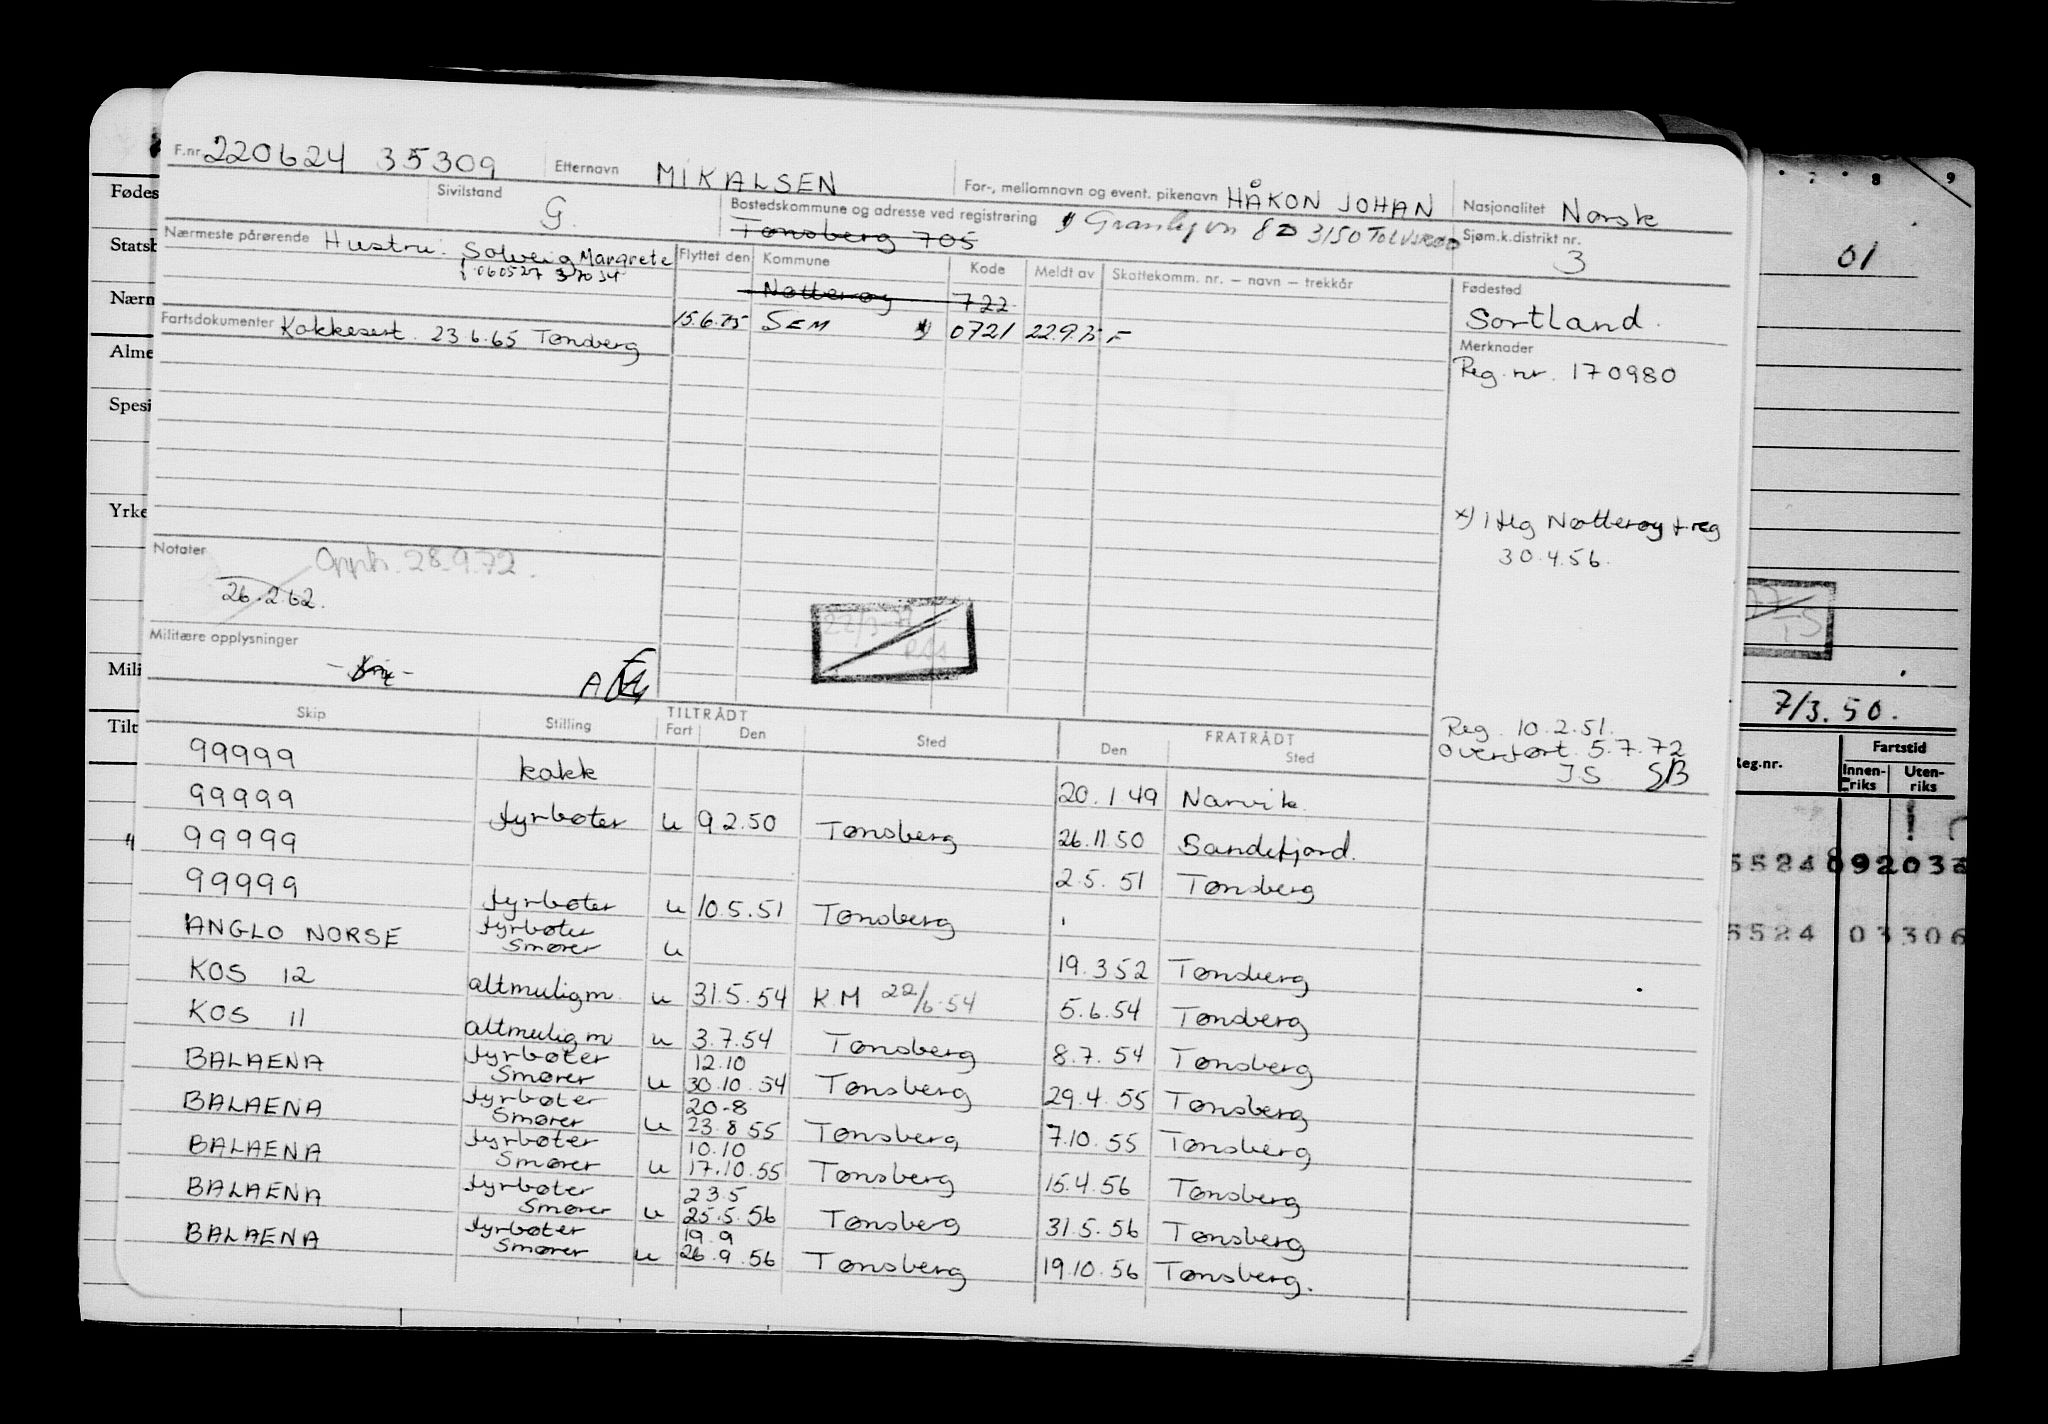 F.nr 220624 35309 Etternavn MIKALSEN For-, mellomnavn og event. pikenavn HÅKON JOHAN Nasjonalitet Norsk
Sivilstand G. Bostedskommune og adresse ved registrering Tønsberg 705 8D 3150 TOLVSRØD Sjøm.k.distrikt nr. 3
Nærmeste pårørende Hustru: Solveig Margrete
060527 37034
Flyttet den Kommune Kode Meldt av Skattekomm. nr. – navn – trekkår
Nøtterøy 722
15.6.75 SEM 0721 22.9.75 F
Fødested
Sortland.
Fartsdokumenter Kokkesert. 23.6.65 Tønsberg
Merknader
Reg. nr. 170980
x) Nøtterøy reg
30.4.56.
Notater Opph. 28.9.72.
26.2.62.
Militære opplysninger
Reg. 10.2.51.
Overført 5.7.72
JS SB
Skip Stilling TILTRÅDT Fart Den Sted FRATRÅDT Den Sted
99999 kokk 20.1 49 Narvik.
99999 fyrbøter u 9 2.50 Tønsberg 26.11.50 Sandefjord.
99999 2.5. 51 Tønsberg
99999 fyrbøter u 10.5.51 Tønsberg
ANGLO NORSE fyrbøter Smører u 19.3 52 Tønsberg
KOS 12 altmuligm. u 31.5.54 KM 22/6-54 5.6.54 Tønsberg
KOS 11 altmuligm u 3.7.54 Tønsberg 8.7. 54 Tønsberg
BALAENA fyrbøter Smører u 12.10 30.10.54 Tønsberg 29.4. 55 Tønsberg
BALAENA fyrbøter Smører u 20-8 23.8 55 Tønsberg 7.10. 55 Tønsberg
BALAENA fyrbøter Smører u 10.10 17.10.55 Tønsberg 15.4. 56 Tønsberg
BALAENA fyrbøter Smører u 23.5 25.5.56 Tønsberg 31.5.56 Tønsberg
BALAENA fyrbøter Smører u 19.9 26.9.56 Tønsberg 19.10.56 Tønsberg.
Fødes
Statsb
Nærn
Alme
Spesi
Yrke
Mili
Tilt
7 8 9
01
TS
7/3.50.
Reg.nr. Fartstid
Innen-riks Uten-riks
5524 092036
5524 03306